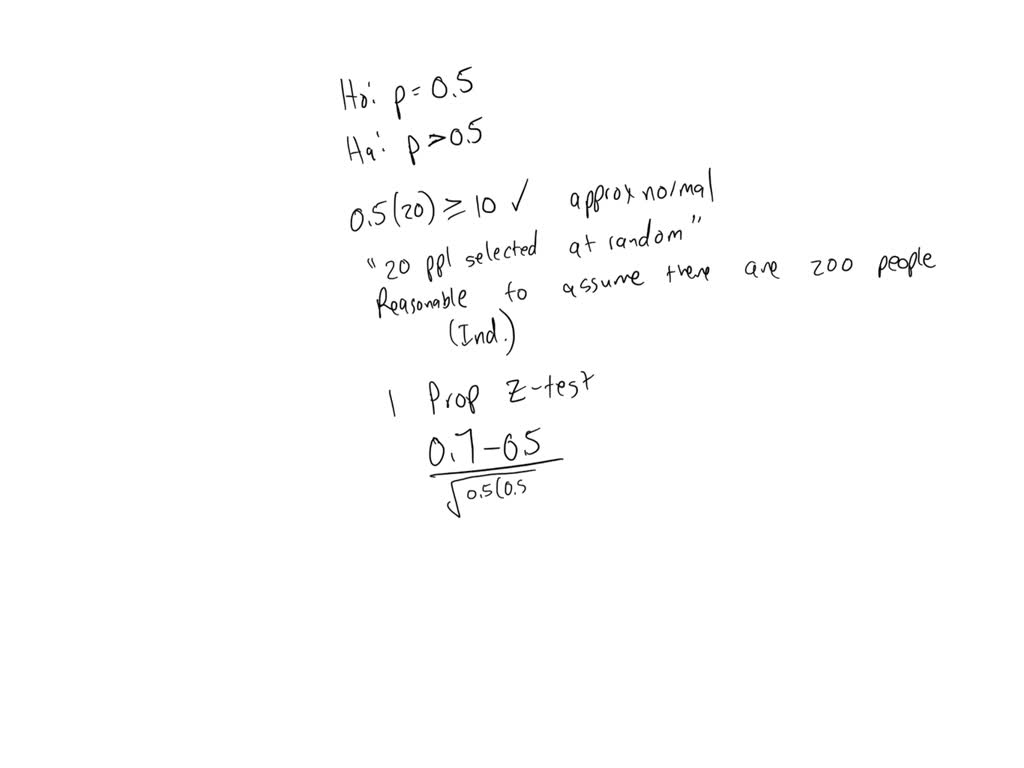 Ho: p = 0.5
Ha: p > 0.5
0.5(20) ≥ 10 ✓ approx normal
"20 ppl selected at random"
Reasonable to assume there are 200 people
(Ind.)
1 Prop Z-test
0.7 - 0.5
√0.5(0.5